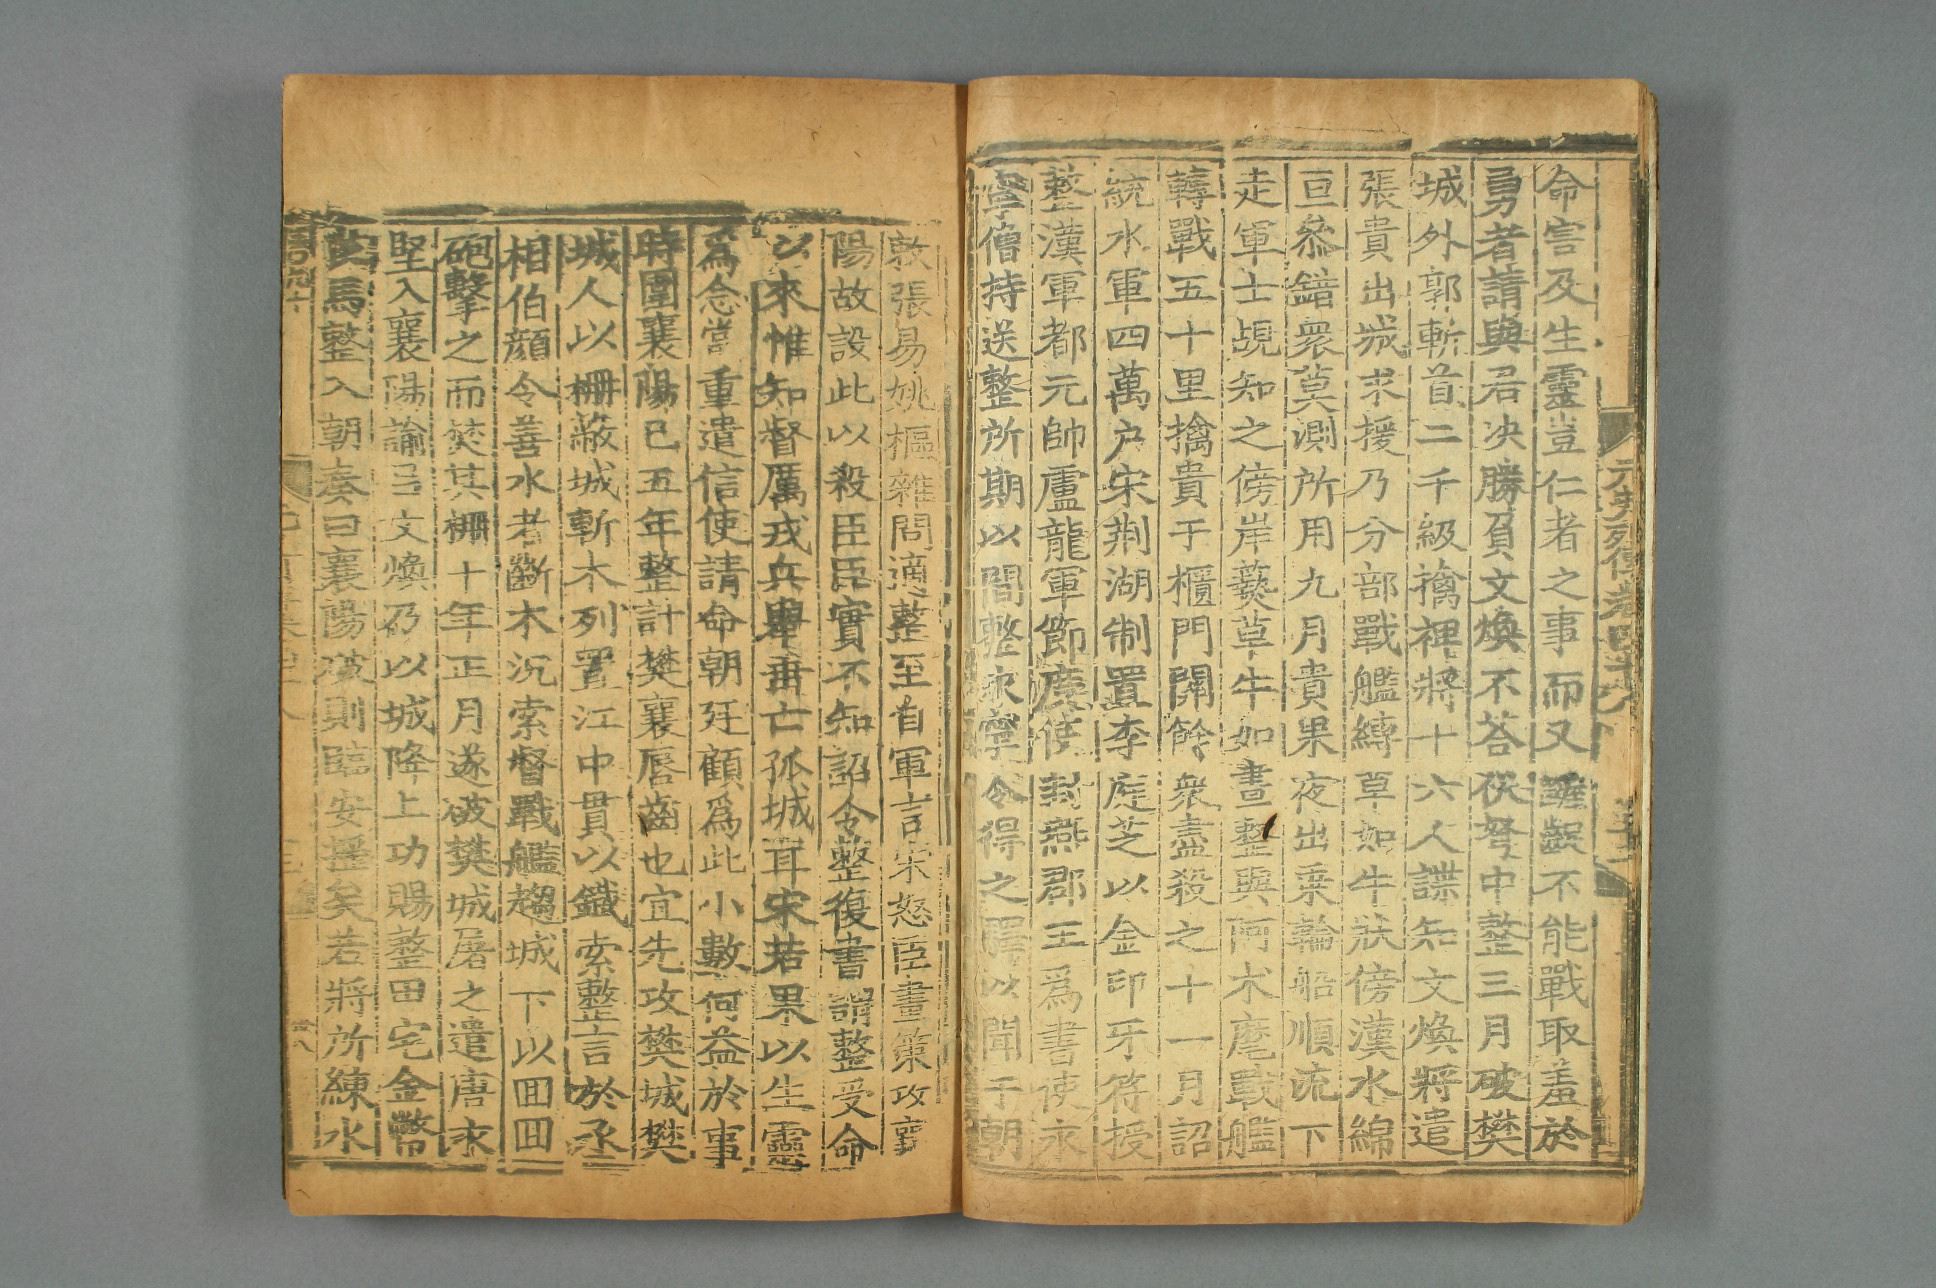 命害及生靈豈仁者之事而又齷齪不能戰取羞於
勇者請與君決勝負文煥不荅伏弩中整三月破樊
城外郭斬首二千級擒裨將十六人諜知文煥將遣
張貴出城求援乃分部戰艦縛草如牛狀傍漢水綿
亘叅錯衆莫測所用九月貴果夜出乗輪船順流下
走軍士覘知之傍岸爇草牛如晝整與阿术麾戰艦
轉戰五十里擒貴于櫃門關餘衆盡殺之十一月詔
統水軍四萬户宋荆湖制置李庭芝以金印牙符授
整漢軍都元帥盧龍軍節度使封燕郡王爲書使永
寧僧持送整所期以間整永寧令得之驛以聞于朝
敕張易姚樞雜問適整至自軍言宋怒臣畫策攻襄
陽故設此以殺臣臣實不知詔令整復書謂整受命
以來惟知督厲戎兵舉垂亡孤城耳宋若果以生靈
爲念當重遣信使請命朝廷顧爲此小數何益於事
時圍襄陽已五年整計樊襄唇齒也宜先攻樊城樊
城人以柵蔽城斬木列置江中貫以鐵索整言於丞
相伯顔令善水者斷木沉索督戰艦趨城下以囬囬
砲擊之而焚其柵十年正月遂破樊城屠之遣唐永
堅入襄陽諭吕文煥乃以城降上功賜整田宅金幣
良馬整入朝奏曰襄陽破則臨安揺矣若將所練水